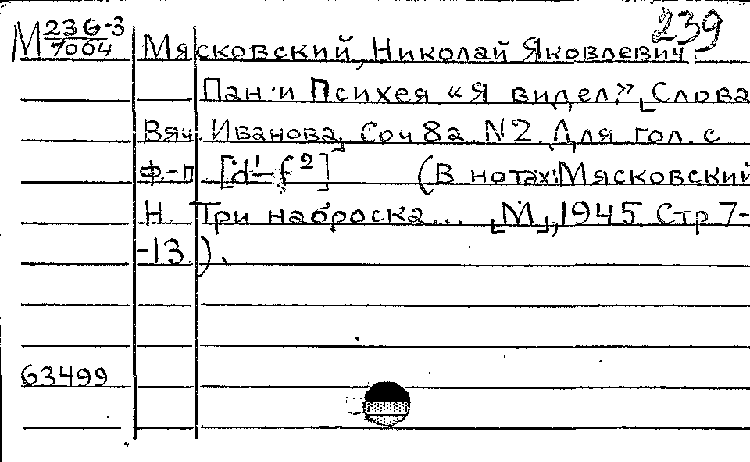 239
М 236-3/7004 Мясковский, Николай Яковлевич
Пан и Психея «Я видел». [Слова
Вяч. Иванова]. Соч 8а N2. Для гол. с
ф.-п [d¹-f²] (В нотах: Мясковский
Н. Три наброска... [М], 1945 Стр 7-
-13).
63499